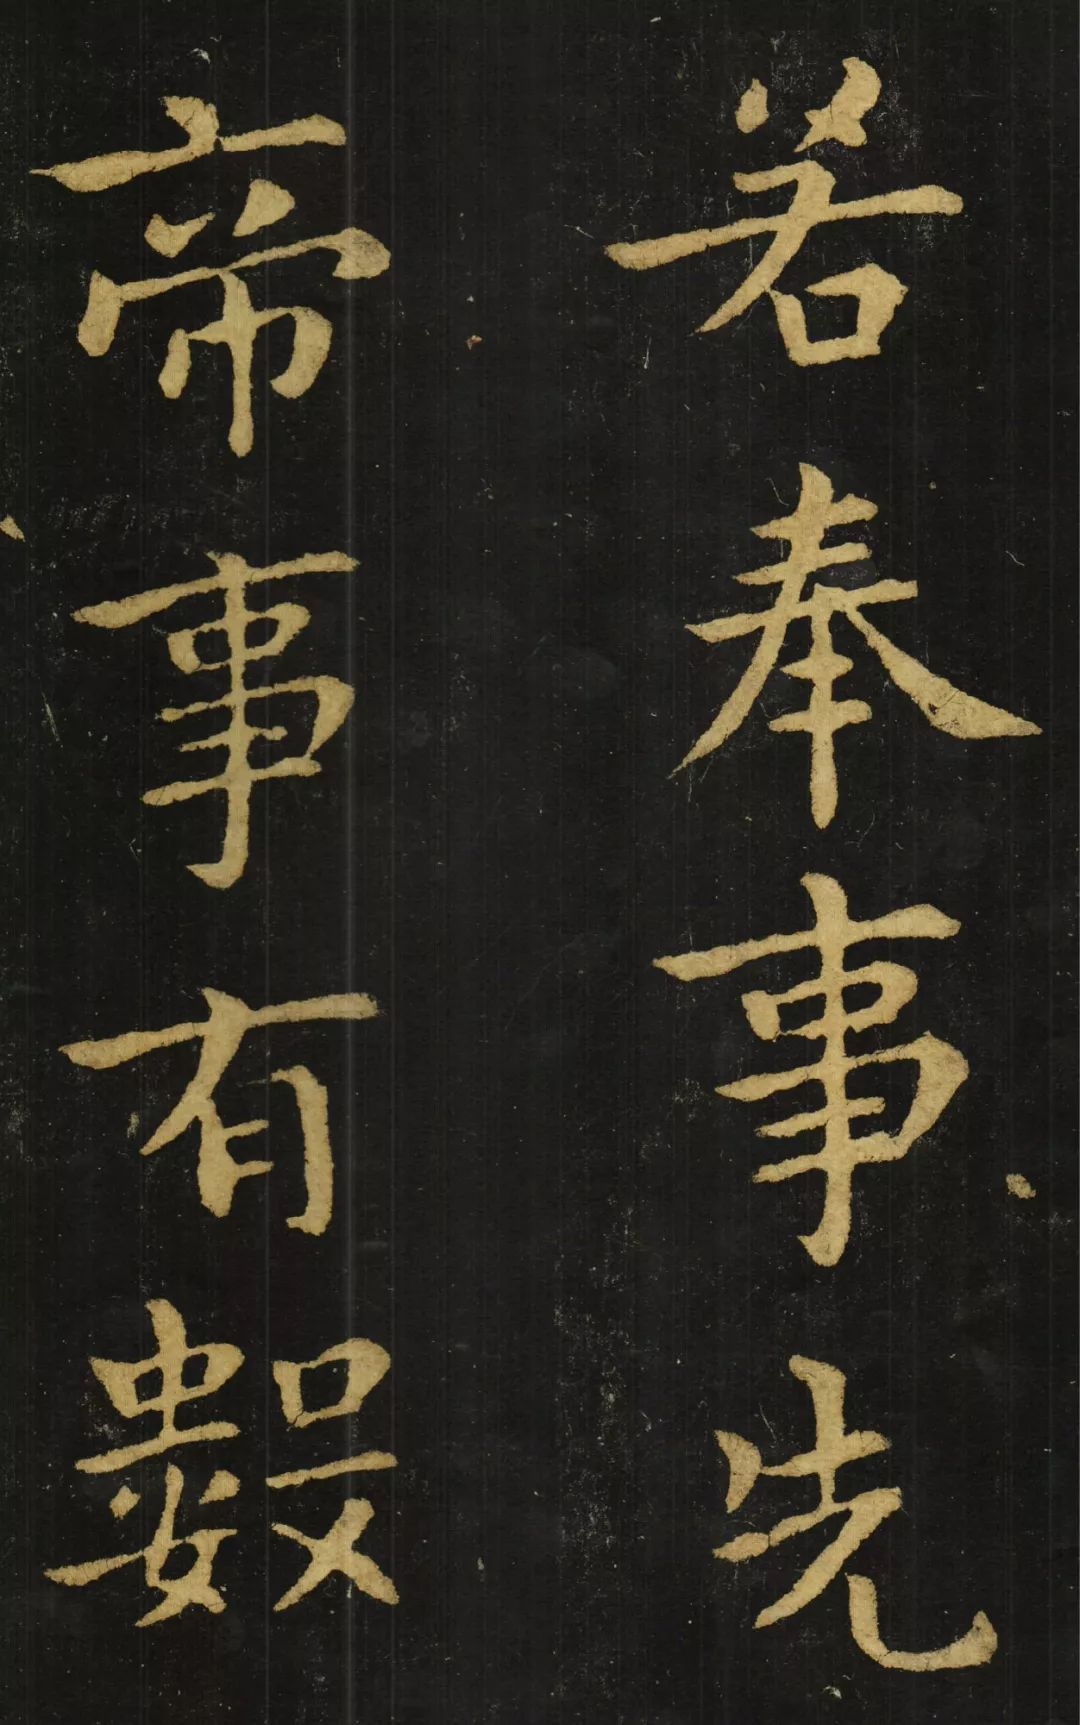 若奉事先
帝事有數